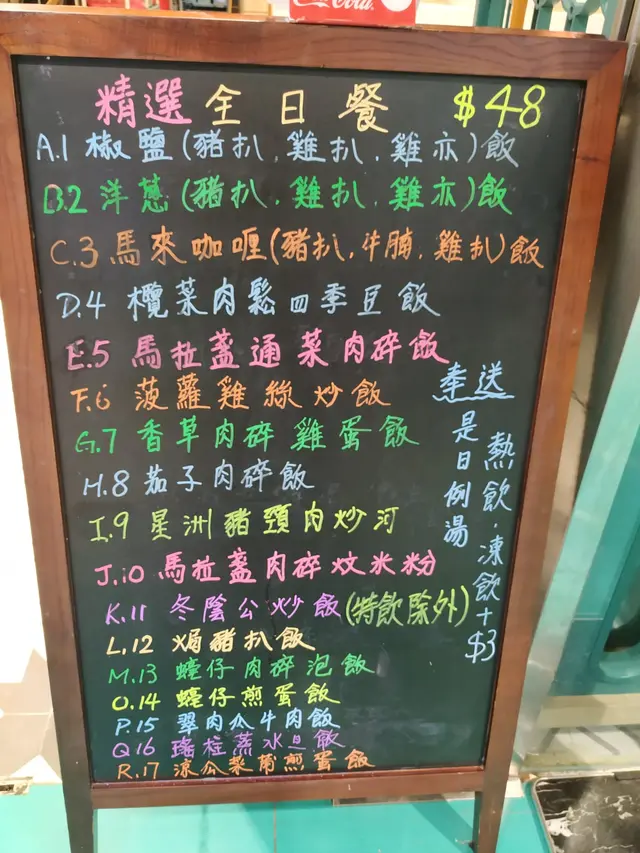 Coca-Cola
精選全日餐 $48
A.1 椒鹽(豬扒.雞扒.雞亦)飯
B.2 洋蔥(豬扒.雞扒.雞亦)飯
C.3 馬來咖喱(豬扒.牛腩.雞扒)飯
D.4 欖菜肉鬆四季豆飯
E.5 馬拉盞通菜肉碎飯
F.6 菠蘿雞絲炒飯
G.7 香草肉碎雞蛋飯
H.8 茄子肉碎飯
I.9 星洲豬頸肉炒河
J.10 馬拉盞肉碎炆米粉
K.11 冬陰公炒飯(特飲除外)
L.12 焗豬扒飯
M.13 蠔仔肉碎泡飯
O.14 蠔仔煎蛋飯
P.15 翠肉瓜牛肉飯
Q16 瑤柱蒸水旦飯
R.17 涼瓜菜甫煎蛋飯
奉送
是日例湯
熱飲.凍飲+$3